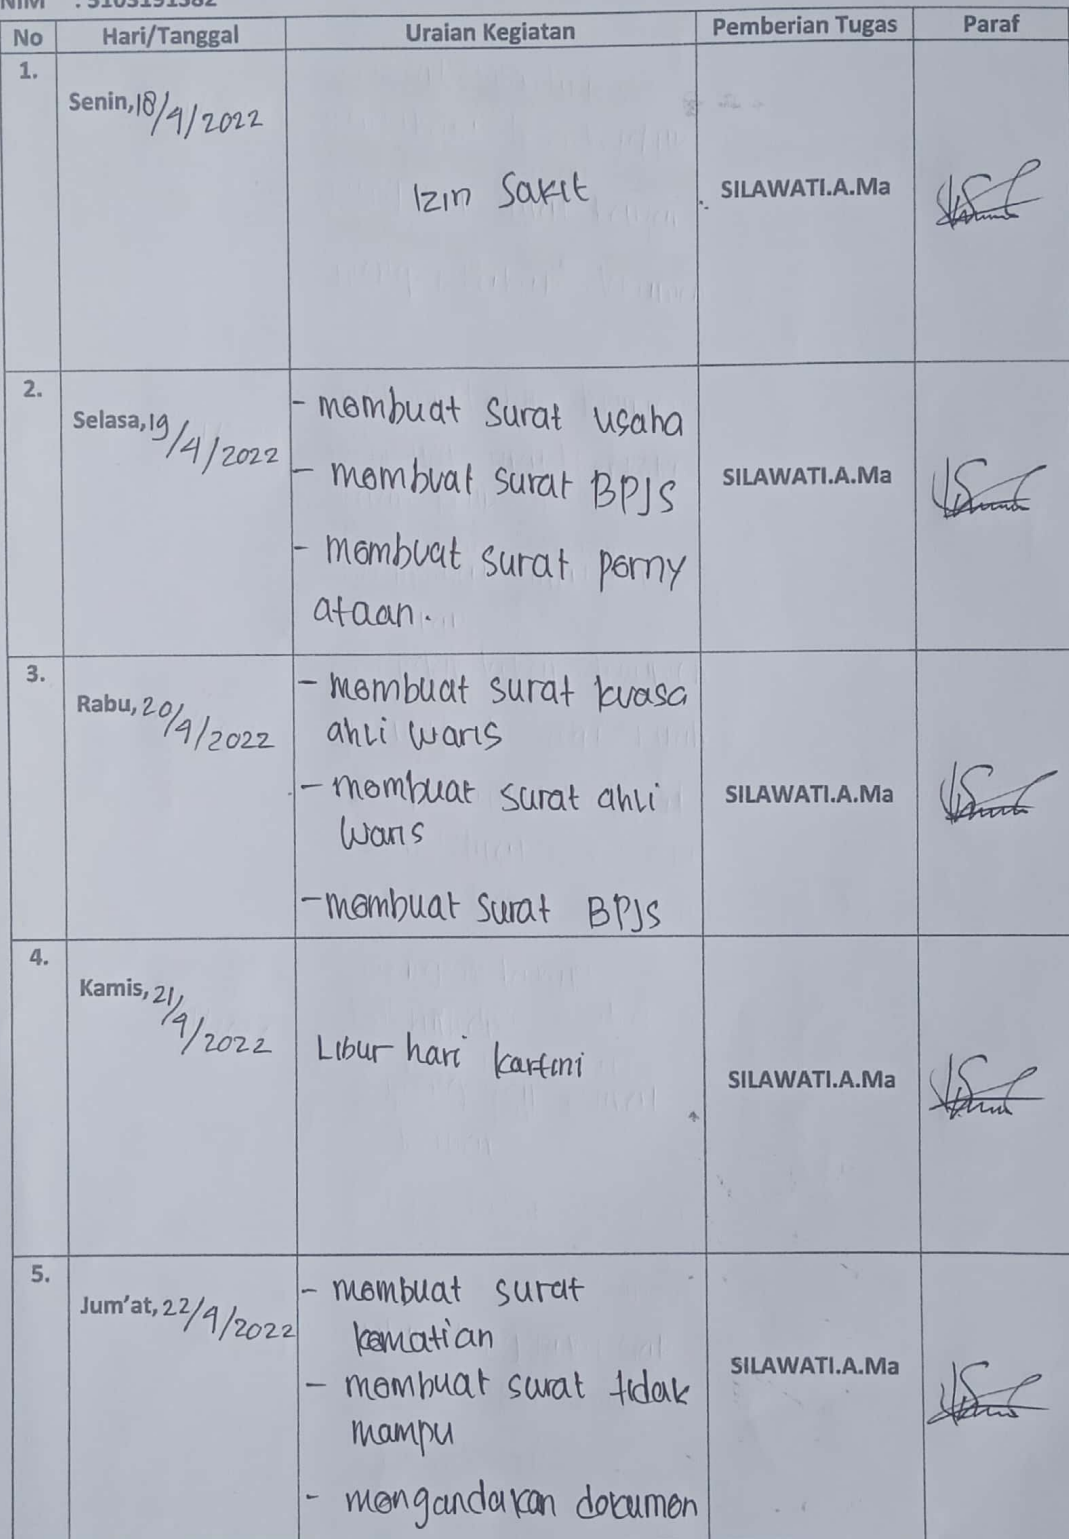 NIM : 5103191382
No Hari/Tanggal Uraian Kegiatan Pemberian Tugas Paraf
1.
Senin,18/4/2022
Izin Sakit
SILAWATI.A.Ma
2.
Selasa,19/4/2022
- membuat surat usaha
- membuat surat BPJS
- membuat surat perny
ataan.
SILAWATI.A.Ma
3.
Rabu,20/4/2022
- membuat surat kuasa
ahli waris
- membuat surat ahli
waris
- membuat surat BPJS
SILAWATI.A.Ma
4.
Kamis,21/4/2022
Libur hari kartini
SILAWATI.A.Ma
5.
Jum'at,22/4/2022
- membuat surat
kematian
- membuat surat tidak
mampu
- mengandakan dokumen
SILAWATI.A.Ma